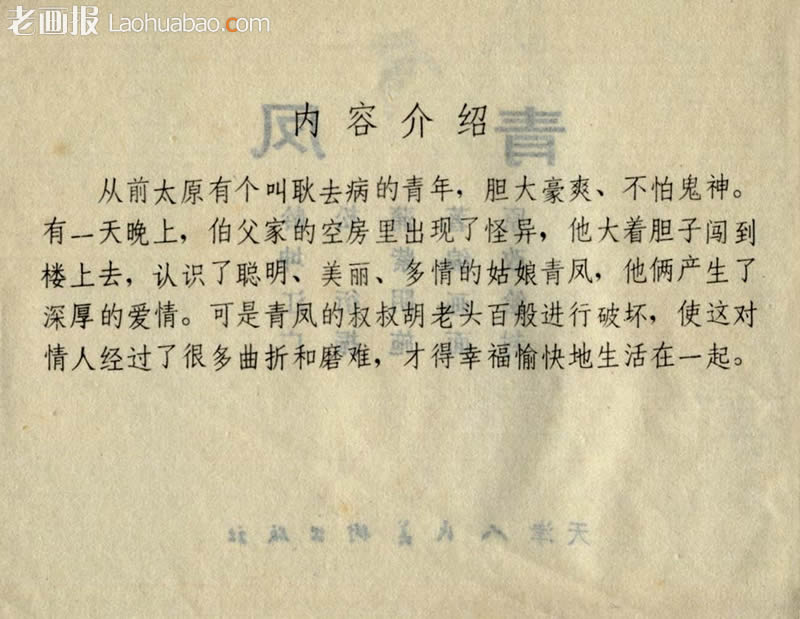 老画报 Laohuabao.com
内容介绍
从前太原有个叫耿去病的青年，胆大豪爽、不怕鬼神。
有一天晚上，伯父家的空房里出现了怪异，他大着胆子闯到
楼上去，认识了聪明、美丽、多情的姑娘青凤，他俩产生了
深厚的爱情。可是青凤的叔叔胡老头百般进行破坏，使这对
情人经过了很多曲折和磨难，才得幸福愉快地生活在一起。
青凤
天津人民美术出版社